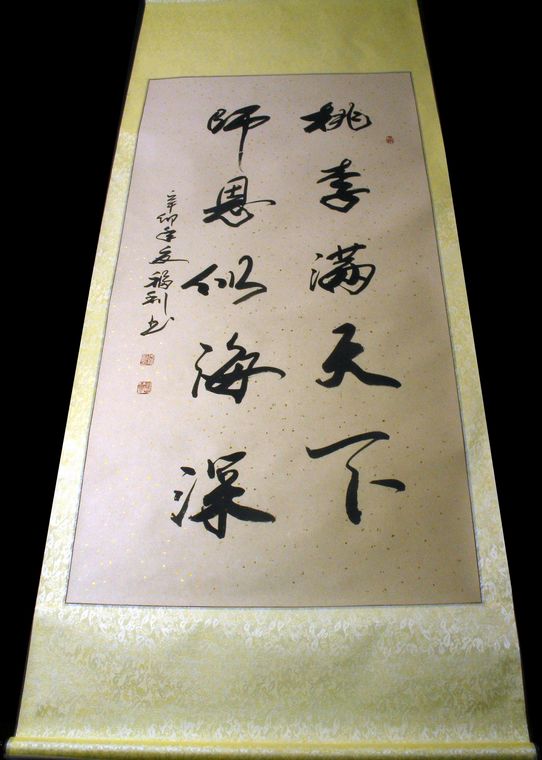 桃李满天下
师恩似海深
辛卯年夏福利书